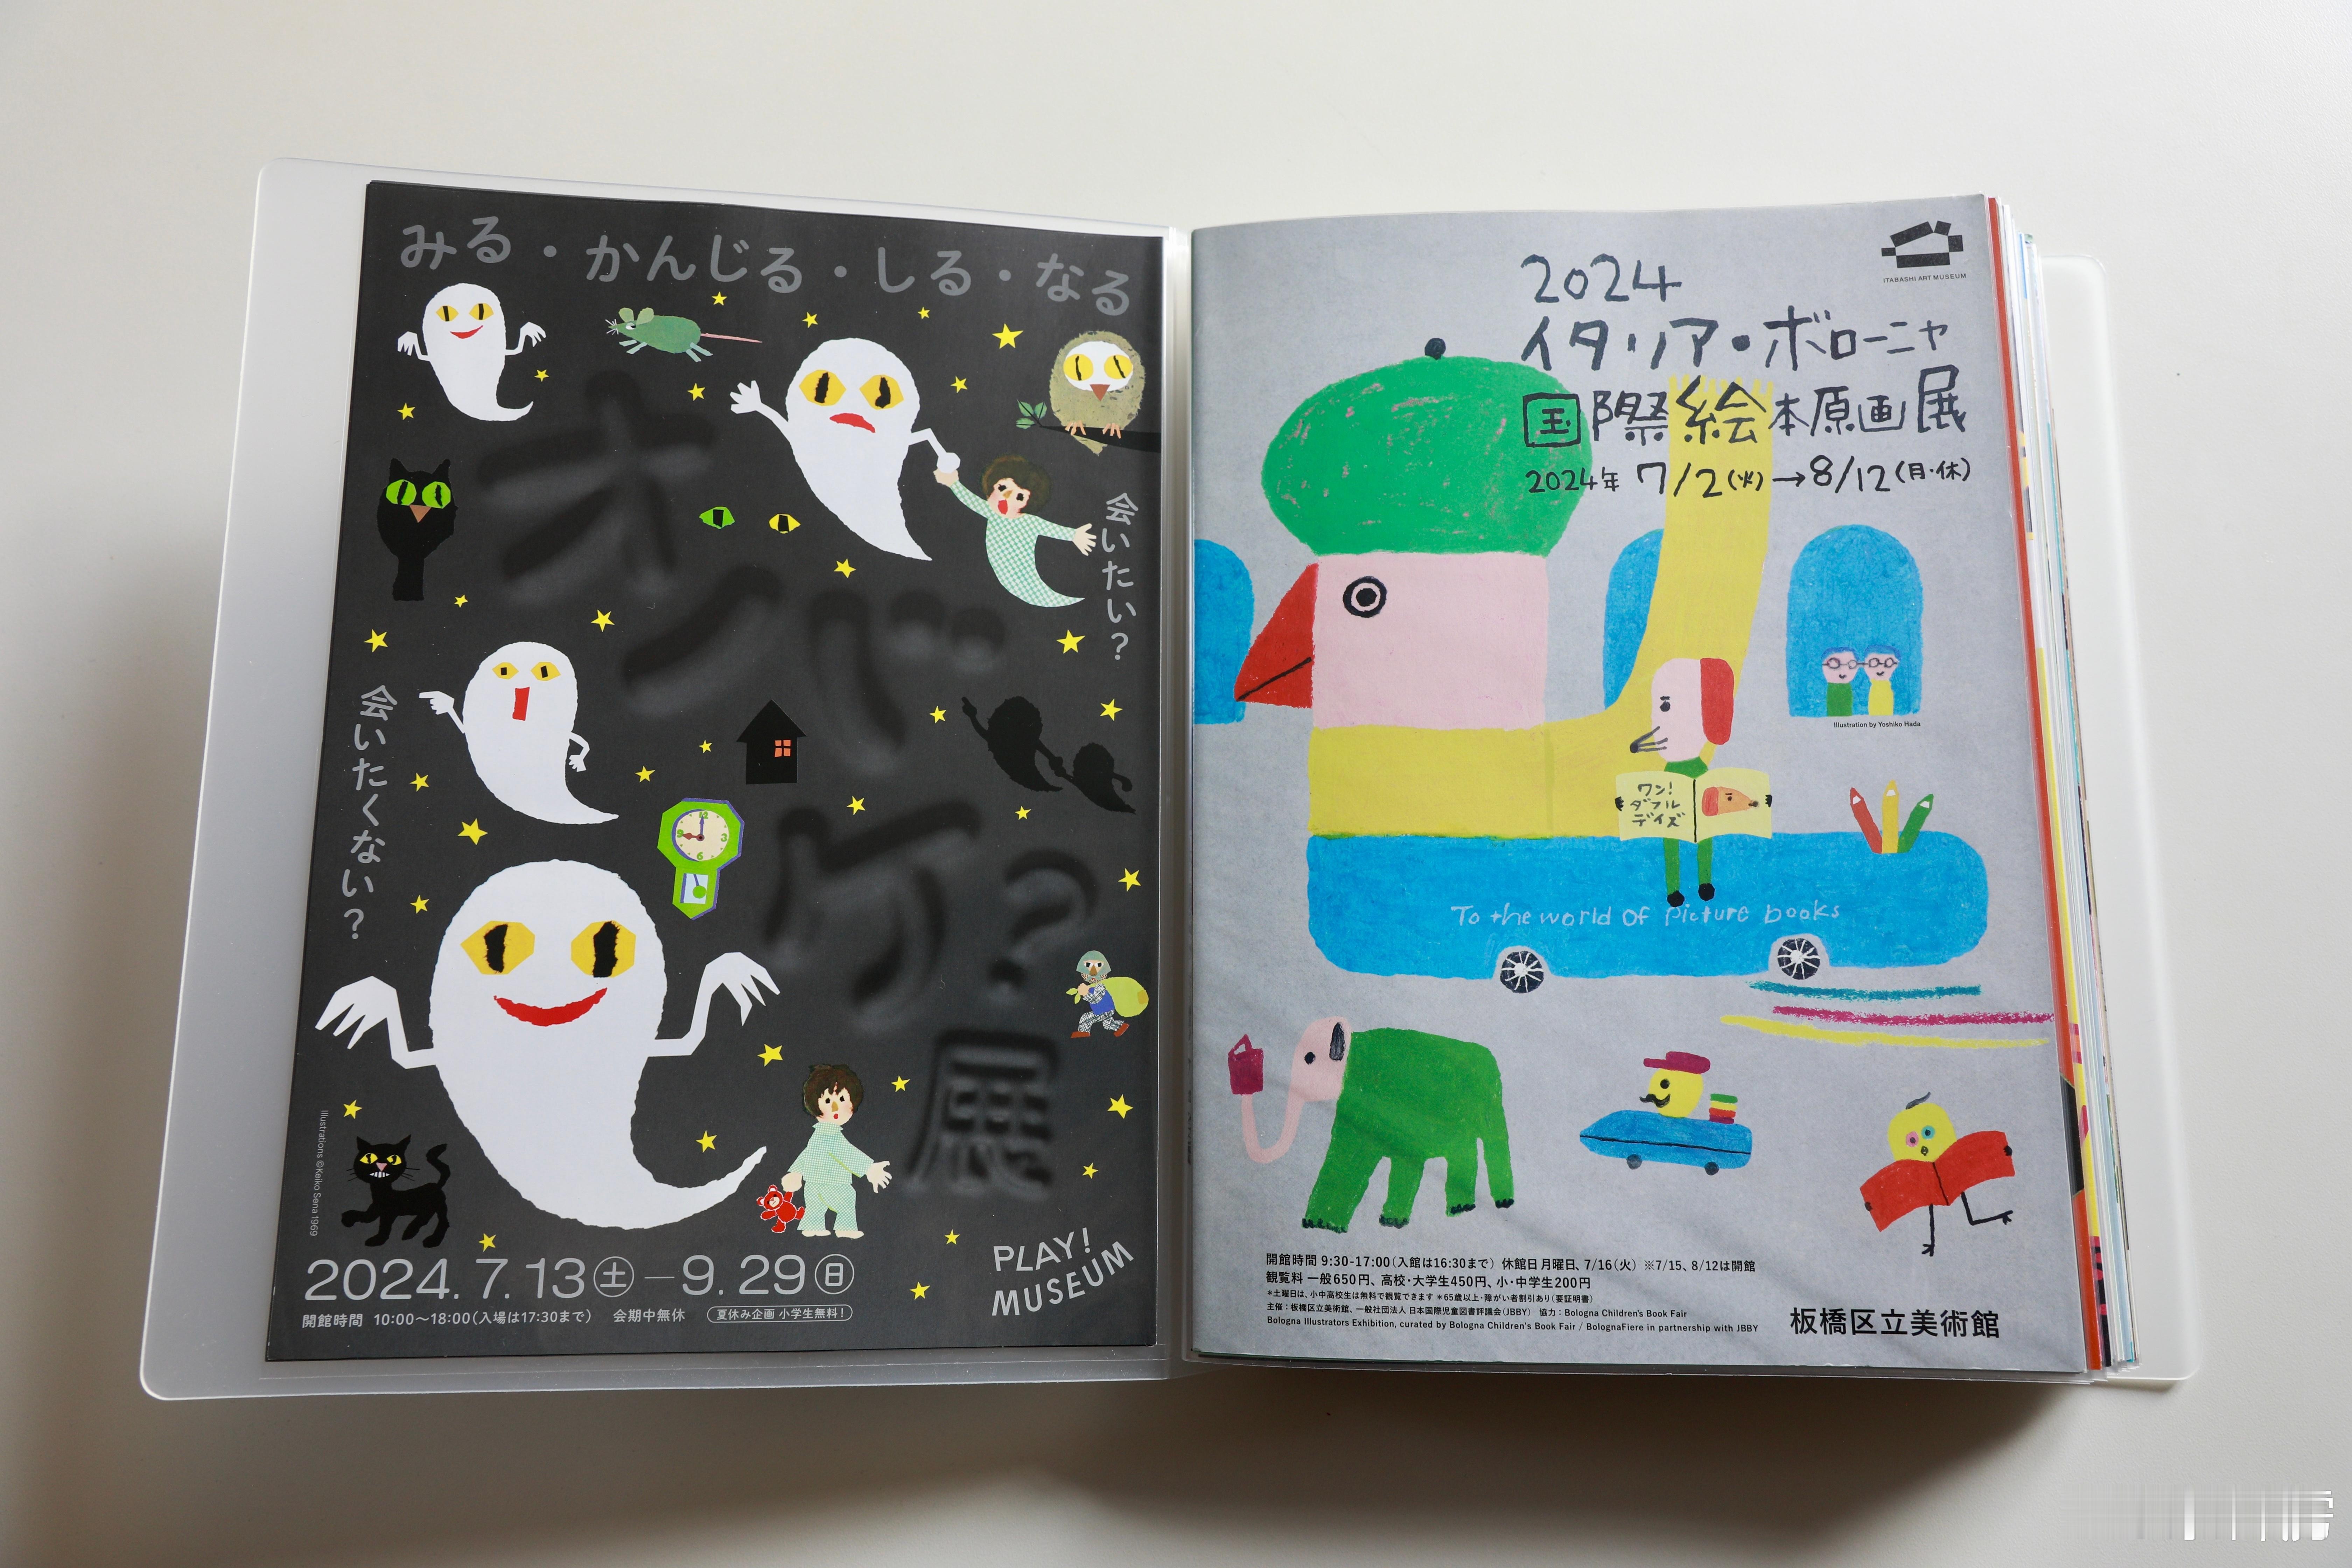 みる・かんじる・しる・なる
オバケ?
展
会いたい?
会いたくない?
Illustrations ©Keiko Sena 1969
2024. 7. 13(土)—9. 29(日)
開館時間 10:00〜18:00(入場は17:30まで) 会期中無休 夏休み企画 小学生無料!
PLAY!
MUSEUM
ITABASHI ART MUSEUM
2024
イタリア・ボローニャ
国際絵本原画展
2024年 7/2(火)→8/12(月・休)
Illustration by Yoshiko Hada
ワン!
ダフル
デイズ
To the world of picture books
開館時間 9:30-17:00(入館は16:30まで) 休館日 月曜日、7/16(火) ※7/15、8/12は開館
観覧料 一般650円、高校・大学生450円、小・中学生200円
*土曜日は、小中高校生は無料で観覧できます *65歳以上・障がい者割引あり(要証明書)
主催:板橋区立美術館、一般社団法人 日本国際児童図書評議会(JBBY) 協力:Bologna Children's Book Fair
Bologna Illustrators Exhibition, curated by Bologna Children's Book Fair / BolognaFiere in partnership with JBBY
板橋区立美術館